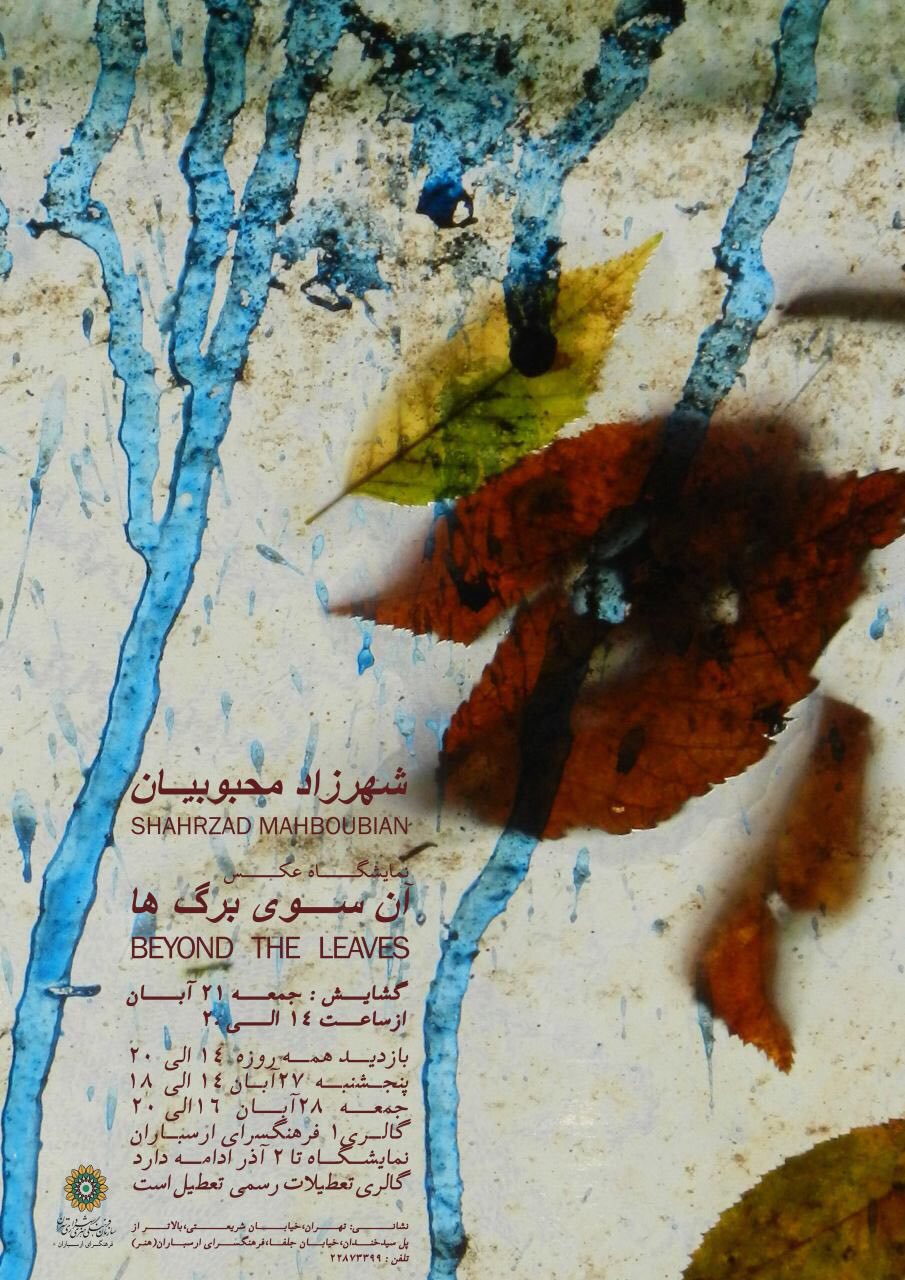 شهرزاد محبوبیان
SHAHRZAD MAHBOUBIAN
نمایشگاه عکس
آن سوی برگ ها
BEYOND THE LEAVES
گشایش : جمعه ۲۱ آبان
ازساعت ۱۴ الی ۲۰
بازدید همه روزه ۱۴ الی ۲۰
پنجشنبه ۲۷آبان ۱۴ الی ۱۸
جمعه ۲۸آبان ۱۶الی ۲۰
گالری۱ فرهنگسرای ارسباران
نمایشگاه تا ۲ آذر ادامه دارد
گالری تعطیلات رسمی تعطیل است
نشانی: تهران،خیابان شریعتی،بالاتر از
پل سیدخندان،خیابان جلفا،فرهنگسرای ارسباران(هنر)
تلفن : ۲۲۸۷۳۳۹۹
فرهنگسرای ارسباران